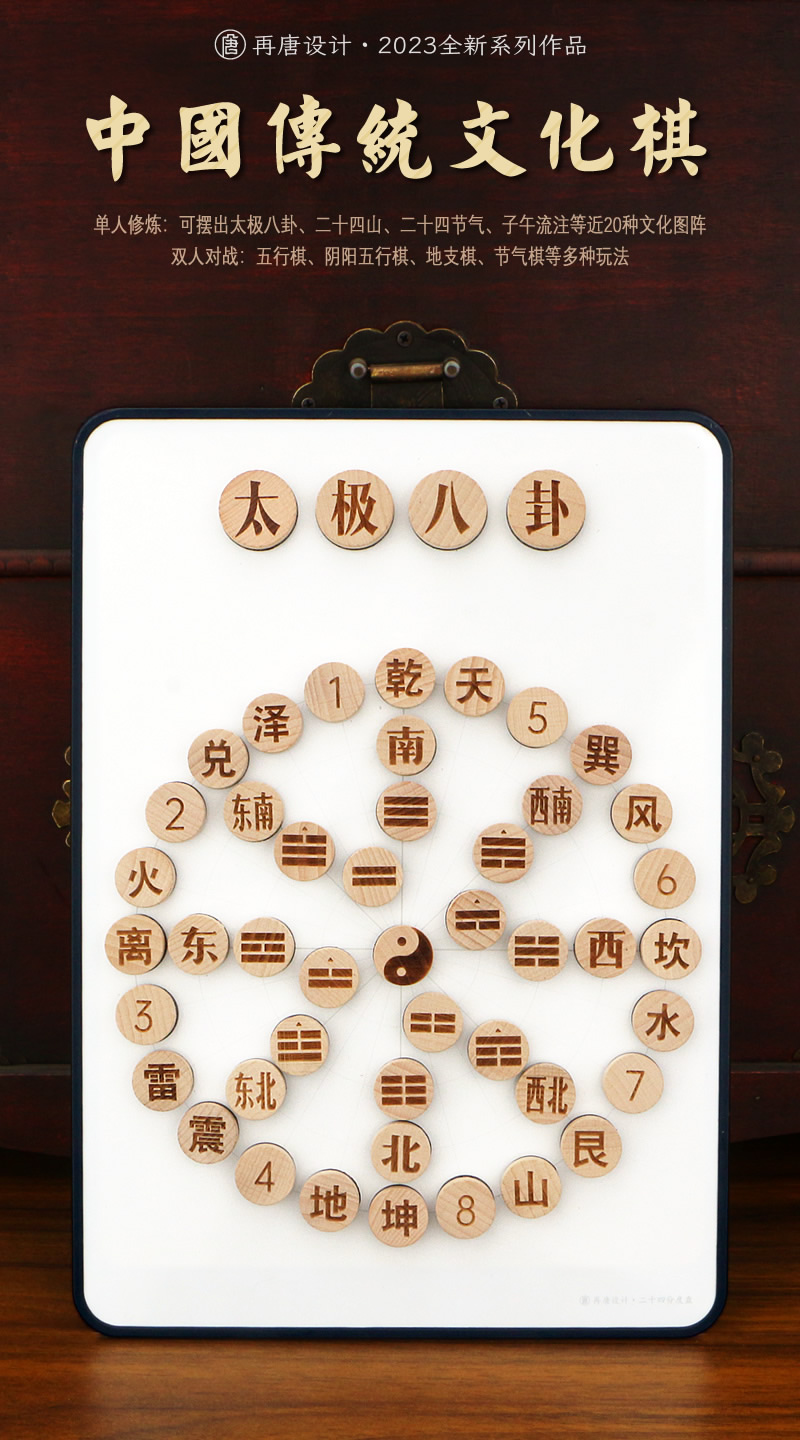 唐 再唐设计·2023全新系列作品
中國傳統文化棋
单人修炼：可摆出太极八卦、二十四山、二十四节气、子午流注等近20种文化图阵
双人对战：五行棋、阴阳五行棋、地支棋、节气棋等多种玩法
太极八卦
1 乾 天
泽 南 5
兑 巽
2 东南 西南 风
火 6
离 东 西 坎
3 水
雷 东北 西北 7
震 北 艮
4 地 坤 8 山
再唐设计×二十四分度盘